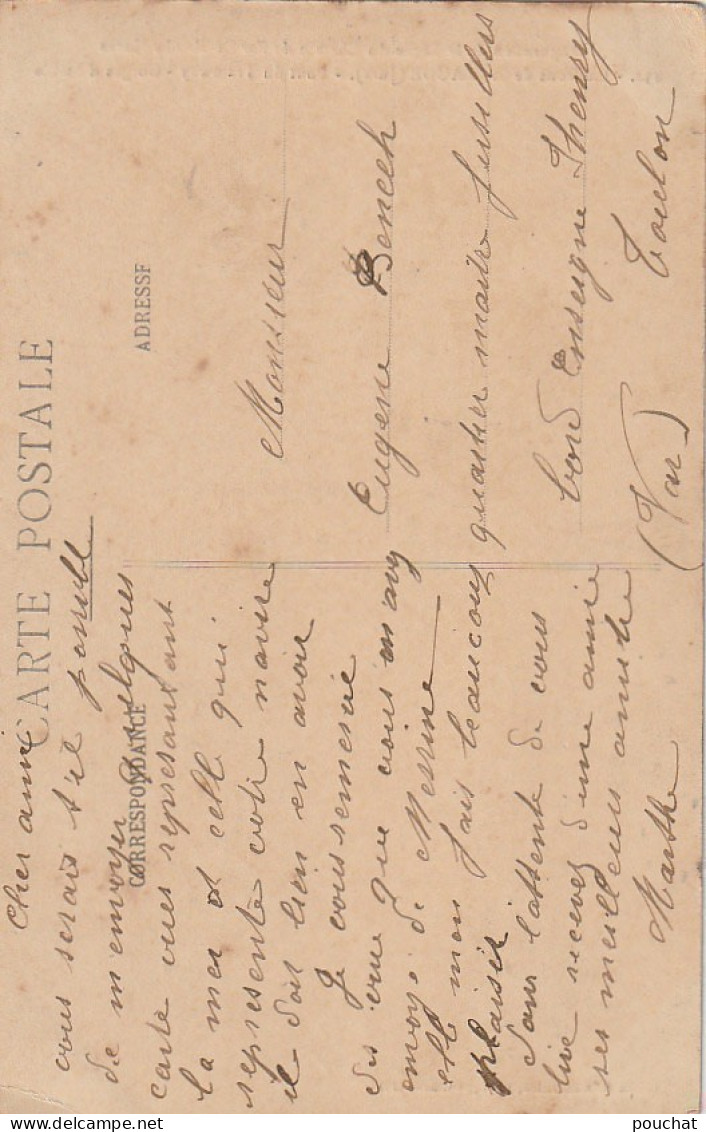 CARTE POSTALE
CORRESPONDANCE
ADRESSE
Cher ami
vous serais t'il possible
de m'envoyer quelques
carte vues represantant
la mer et celle qui
represente votre navire
il doit bien en avoir
Je vous remercie
des vue que vous m'avez
envoyé de Messine
elle mon fais beaucoup
plaisir
Dans l'attente de vous
lire recevez d'une amie
ses meilleurs amitié
Marthe
Monsieur
Eugene Benech
quartier maitre fusillers
bord Enseigne Henry
Toulon
(Var)
pouchat